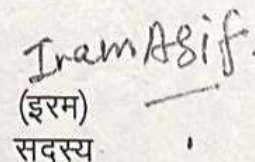 Iram Asif.
(इरम)
सदस्य